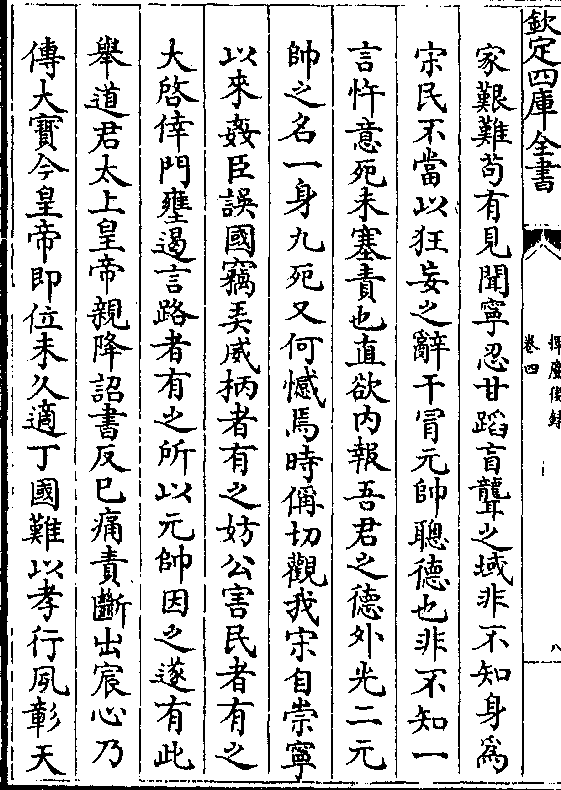 欽定四庫全書
捍廬僟録
卷四
八
家艱難苟有見聞寧忍甘蹈盲聾之域非不知身爲
宋民不當以狂妄之辭干冐元帥聰德也非不知一
言忤意死未塞責也直欲内報吾君之德外光二元
帥之名一身九死又何憾焉時偁切觀我宋自崇寧
以來姦臣誤國竊弄威柄者有之妨公害民者有之
大啓倖門壅遏言路者有之所以元帥因之遂有此
舉道君太上皇帝親降詔書反已痛責斷出宸心乃
傳大寶今皇帝即位未久適丁國難以孝行夙彰天